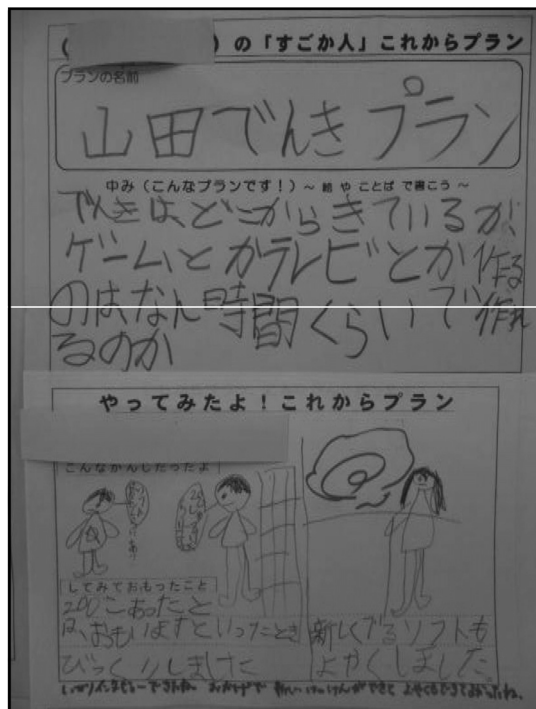 の「すごか人」これからプラン
プランの名前
山田でんきプラン
中み（こんなプランです！）～ 絵 や ことば で書こう ～
でんきは、どこからきているか、
ゲームとかテレビとか作る
のはなん時間くらいで作れ
るのか
やってみたよ！これからプラン
こんなかんじだったよ
してみておもったこと
200こあったこと
は、おもいますといったとき
びっくりしました
新しくでるソフトも
よやくしました。